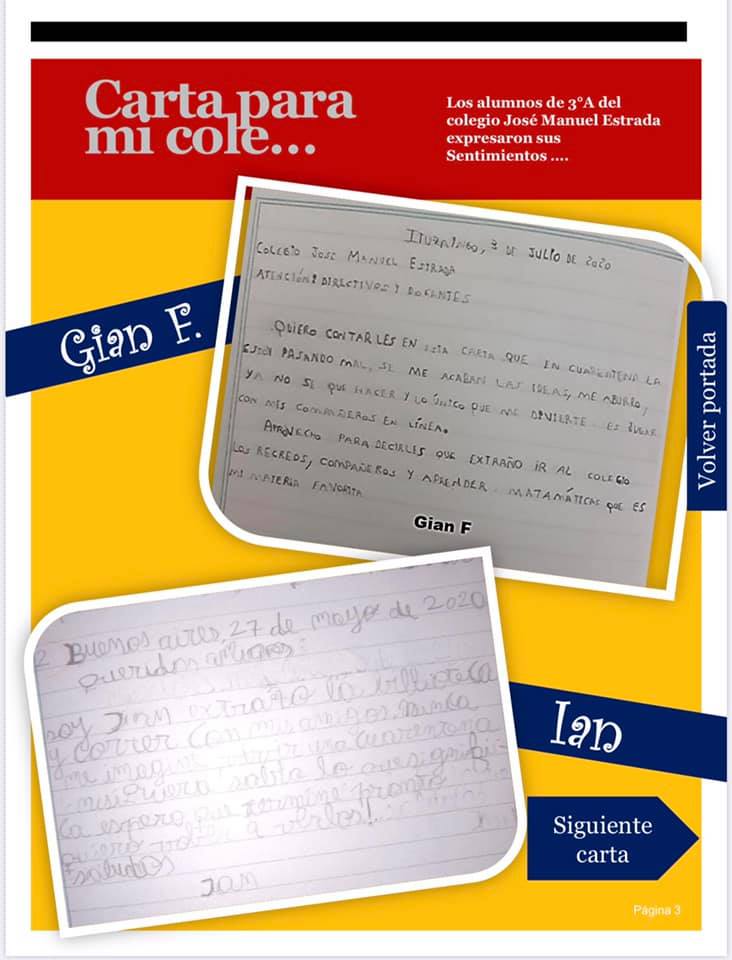 Carta para
mi cole...
Los alumnos de 3°A del
colegio José Manuel Estrada
expresaron sus
Sentimientos ....
Gian F.
ITUZAINGO, 3 DE JULIO DE 2020
COLEGIO JOSE MANUEL ESTRADA
ATENCIÓN: DIRECTIVOS Y DOCENTES
QUIERO CONTARLES EN ESTA CARTA QUE EN CUARENTENA LA
ESTOY PASANDO MAL, SE ME ACABAN LAS IDEAS, ME ABURRO,
YA NO SE QUE HACER Y LO ÚNICO QUE ME DIVIERTE ES JUGAR
CON MIS COMPAÑEROS EN LÍNEA.
APROVECHO PARA DECIRLES QUE EXTRAÑO IR AL COLEGIO
LOS RECREOS, COMPAÑEROS Y APRENDER MATAMÁTICAS QUE ES
MI MATERIA FAVORITA
Gian F
Volver portada
Buenos aires, 27 de mayo de 2020
queridos amigos:
soy Ian extraño la billioteca
y correr con mis amigos. Nunca
me imagine vivir una cuarentena
ni siquiera sabia lo que signifi
ca espero que termine pronto
quiero volver a verlos!
saludos
Ian
Ian
Siguiente
carta
Página 3